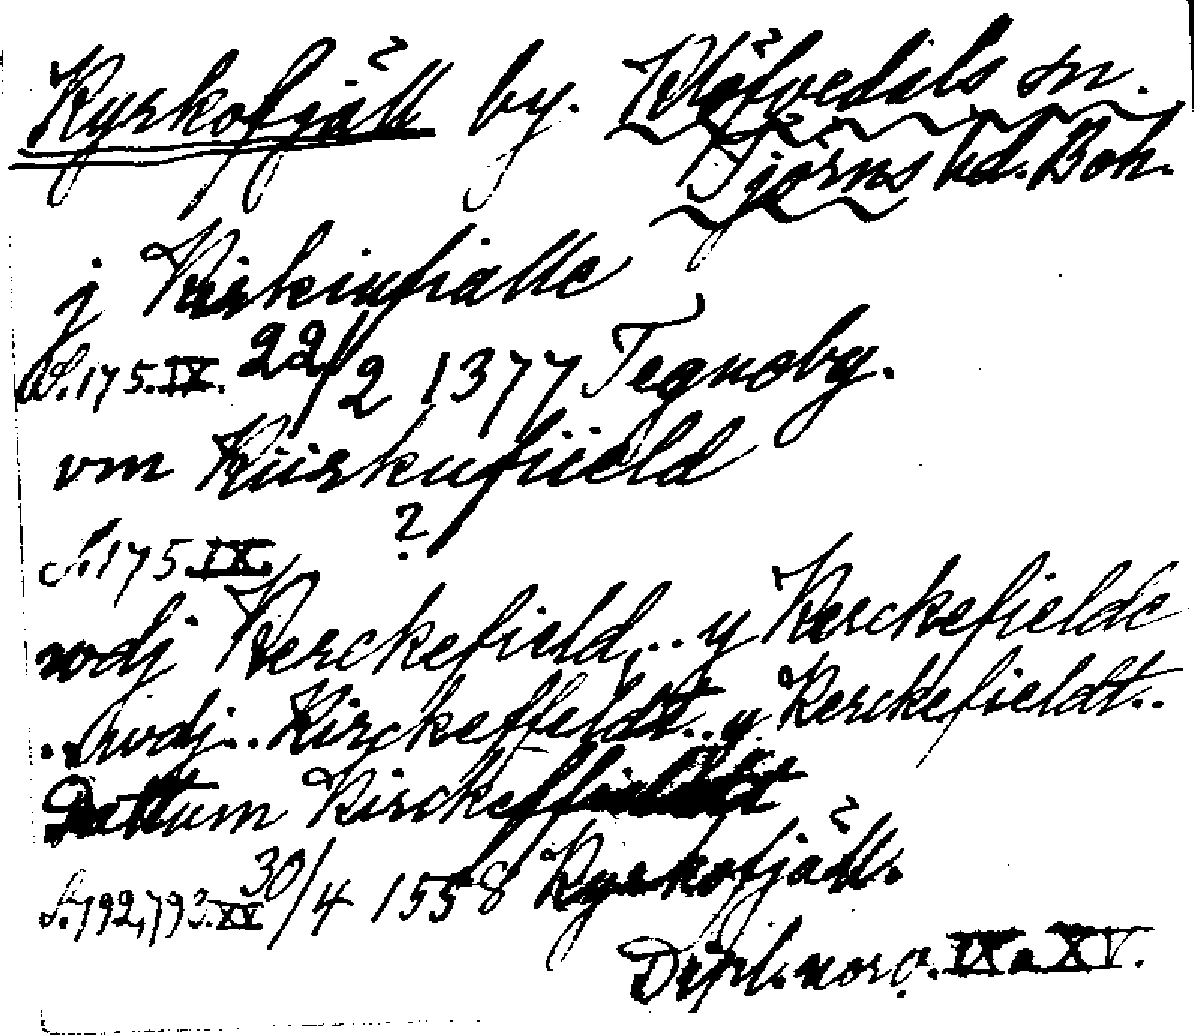 Kyrkofjäll by. Klöfvedals sn.
Tjörns hd. Boh.
j Kirkiufialle
S. 175. IX. 22/2 1377 Tegnaby.
vm Kiirkufiield
S. 175. IX. ?
wdj Kerckefield... y Kerckefielde
... wdj.. Kirckeffeldt.. y Kerckefieldt..
Dattum Kirckeffieldt
S. 792, 793. XV 30/4 1558 Kyrkofjäll.
Dipl. norv. IX a XV.